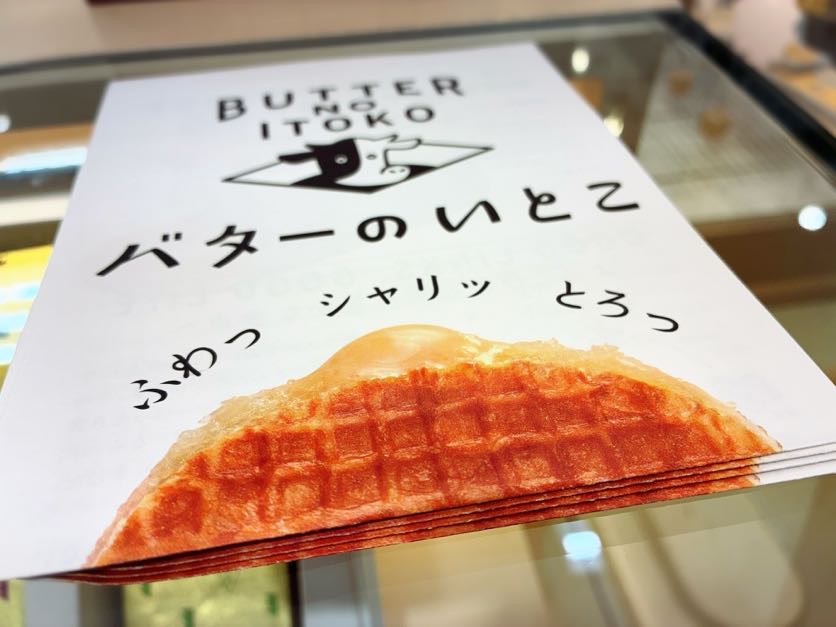 BUTTER
NO
ITOKO
バターのいとこ
ふわっ シャリッ とろっ